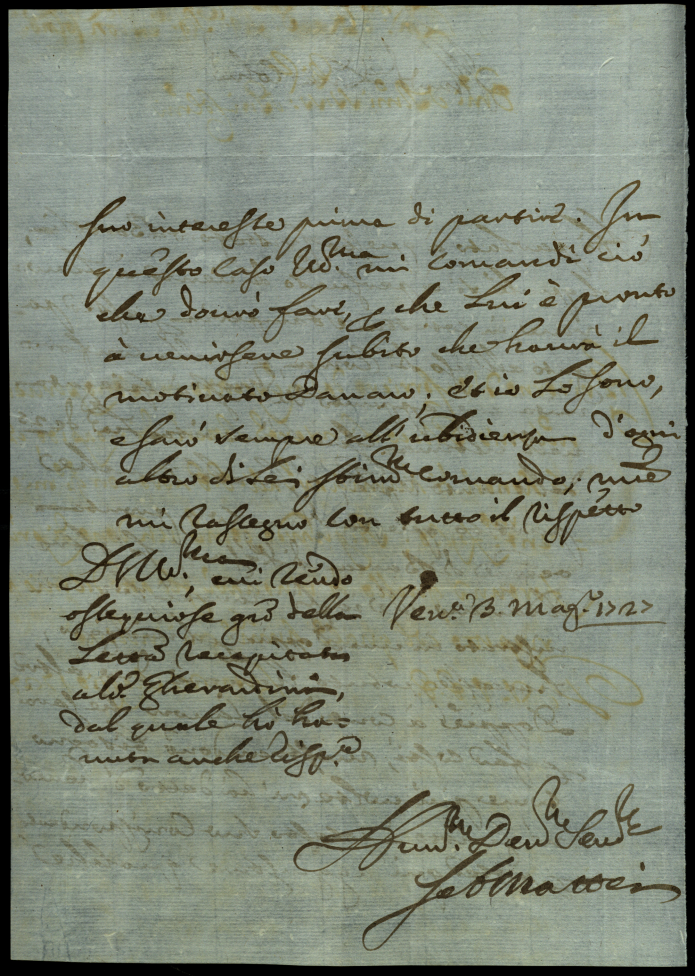 suo interesse prima di partire. In
questo caso VS. Ill.ma mi comandi ciò
che dovrò fare, che lui è pronto
à venirsene subito che haurà il
motivato Danaro; et io Lo sono,
e sarò sempre all'ubidienza d'ogni
altro di Lei stim.mo comando, m̃e
mi rassegno con tutto il rispetto
D VS. Ill.ma, e mi rendo
ossequiose grẽ della
Lettrã recapitata
al Sr̃ Gherardini,
dal quale hò ha=
uuta anche risp.ta
Ven.a 3. Mag.o 1727
Hum.mo Dev.mo Ser.re
Seb Mattei